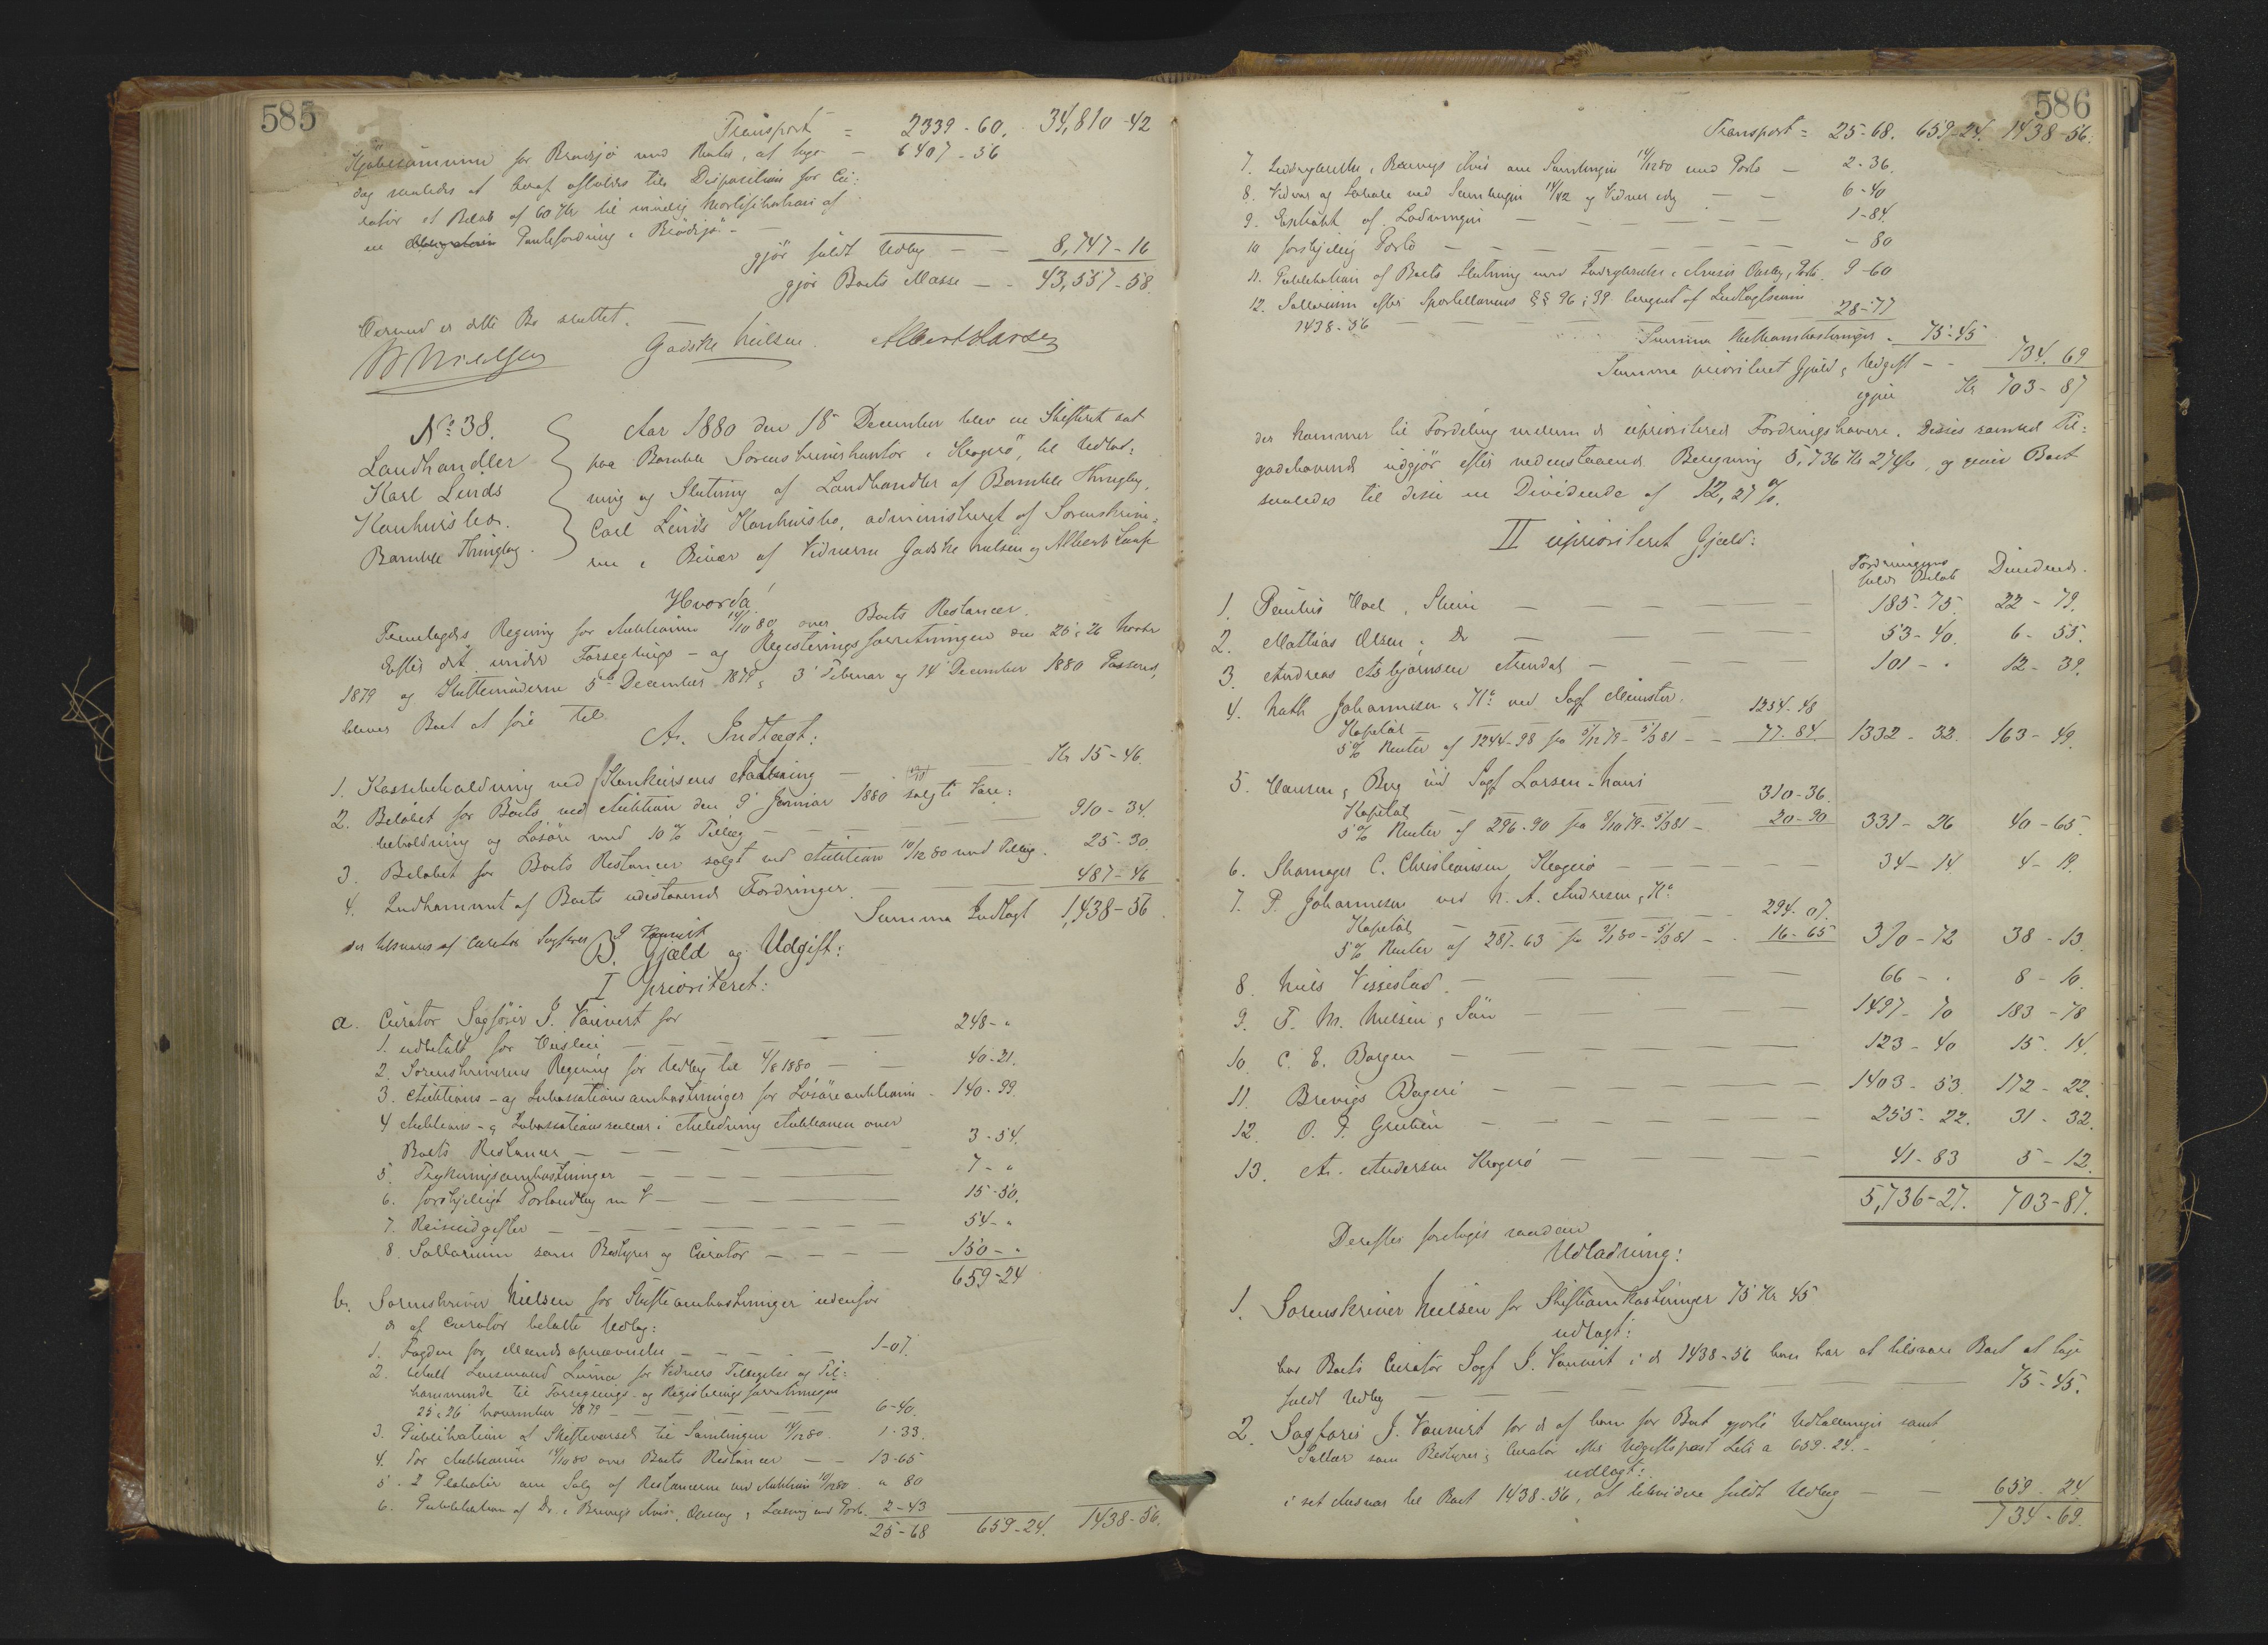 585
Transport = 2339-60. 34,810-42
Kjøbesummen for Brødsjø med Renter, at tage — 6407-56
dog saaledes at heraf afholdes til Disposition for Cu:
rator et Beløb af 60 Kr til mulig Mortifikation af
en Obligation Pantefordring i Brødsjø —
gjør fuldt Udlæg — — 8,747-16
gjør Boets Masse — - 43,557-58.
Hermed er dette Bo sluttet.
Nielsen Gadske Nielsen. Albert Larsen
No 38.
Landhandler
Karl Linds
Konkursbo.
Bamble Thinglag.
Aar 1880 den 18 December blev en Skifteret sat
paa Bamble Sorenskriverkontor i Kragerø, til Udlod:
ning og Slutning af Landhandler af Bamble Thinglag,
Carl Linds Konkursbo, administreret af Sorenskrive:
ren i Bivær af Vidnerne Gadske Nielsen og Albert Larsen
Hvorda!
Fremlagdes Regning for Auktionen 14/10 80 over Boets Restancer.
Efter det under Forseglings- og Registreringsforretningen den 25 & 26 Novbr
1879 og Skiftemøderne 5te December 1879, 3 Februar og 14 December 1880 Passerede,
bliver Boet at føre til
A. Indtægt:
1. Kassebeholdning ved Konkursens Aabning — — Kr 15-46.
2. Beløbet for Boets ved Auktion den 9 Januar 1880 solgte Vare:
beholdning og Løsøre med 10 % Tillæg — — — 910-34.
3. Beløbet for Boets Restancer solgt ved Auktion 10/12 80 med Tillæg. 25-30.
4. Indkommet af Boets udestaaende Fordringer — — 487-46
Summa Indtægt 1,438-56.
der tilsvares af Curator Sagfører J Vauvert
B. Gjæld og Udgift:
I prioriteret:
a. Curator Sagfører J. Vauvert for
1. udbetalt for Husleie — — — 248-"
2. Sorenskriverens Regning for Udlæg til 4/8 1880 — — 40-21.
3. Auktions- og Inkassationsomkostninger for Løsøreauktionen - 140-99.
4 Auktions- & Inkassationssalær i Anledning Auktionen over
Boets Restancer — — — 3-54.
5. Trykningsomkostninger — — — 7-"
6. forskjelligt Portoudlæg m V — — — 15-50.
7. Reiseudgifter — — — 54-"
8. Sallarium som Bestyrer og Curator — — — 150-"
659-24
b. Sorenskriver Nielsen for Skifteomkostninger udenfor
de af Curator betalte Udlæg:
1. Fogden for Mænds opnævnelse — — — 1-07.
2. betalt Lensmand Lunna for Vidners Tilsigelse og Til:
kommende til Forseglings- og Registreringsforretningen
25 & 26 November 1879 — — — 6-40.
3. Publikation af Skiftevarsel til Samlingen 14/12 80. 1-33.
4. For Auktionen 14/10 80 over Boets Restancer — — 13-65
5. 2 Plakater om Salg af Restancerne ved Auktion 10/12 80. " 80
6. Publikation af Do i Brevigs Avis, Opslag & Læsning med Porto. 2-43
25-68 659-24. 1438-56.
586
Transport = 25-68. 659-24. 1438-56.
7. Indrykkelse i Brevigs Avis om Samlingen 14/12 80 med Porto — 2-36.
8. Vidner og Lokale ved Samlingen 14/12 og Vidner idag — — 6-40
9. Extrakt af Lodningen — — — 1-84.
10 forskjellig Porto — — — - 80
11. Publikation af Boets Slutning med Indrykkelse i Avisen Opslag, Porto. 9-60
12. Sallarium efter Sportellovens §§ 96 & 39. beregnet af Indtægtssum
1438-56 — — — 28-77
Summa Skifteomkostninger - 75-45
Summa prioriteret Gjæld & Udgift — - 734.69
igjen Kr 703-87
der kommer til Fordeling mellem de uprioriterede Fordringshavere. Disses samlede Til:
godehavende udgjør efter nedenstaaende Beregning 5,736 Kr 27 Øre, og giver Boet
saaledes til disse en Dividende af 12,27 %.
II uprioriteret Gjæld:
Fordringens fulde Beløb Dividende.
1. Paulus Hoel, Skien — — — 185-75. 22-79.
2. Mathias Olsen, Do — — — 53-40. 6-55.
3. Andreas Asbjørnsen Arendal — — — 101-" 12-39.
4. Nath Johannesen & Ko ved Sagf Münster.
Kapital — — — 1254-48
5 % Renter af 1244-98 fra 5/12 79 - 5/3 81 — - 77-84. 1332-32. 163-49.
5. Hansen & Berg ved Sagf Larsen-Næss
Kapital — — — 310-36.
5 % Renter af 296-90 fra 9/10 79 - 5/3 81 - 20-90 331-26 40-65.
6. Skomager C. Christiansen, Kragerø — — — 34-14. 4-19.
7. P. Johannesen ved N. A. Andresen & Ko
Kapital — — — 294-07.
5 % Renter af 287-63 fra 7/1 80 - 5/3 81 — 16-65 310-72 38-13.
8. Niels Vissestad — — — 66-" 8-10.
9. T. M. Nielsen & Søn — — — 1497-70 183-78
10. C. E. Borgen — — — 123-40 15-14.
11. Brevigs Bageri — — — 1403-53. 172-22.
12. O. P. Grubén — — — 255-22. 31-32.
13. A. Andersen Kragerø — — — 41-83 5-12.
5,736-27. 703-87.
Derefter foretoges saadan
Udlodning:
1. Sorenskriver Nielsen for Skifteomkostninger 75 Kr 45
udlagt:
hos Boets Curator Sagf J. Vauvert i de 1438-56 han har at tilsvare Boet at tage
fuldt Udlæg — — — 75-45.
2. Sagfører J. Vauvert for de af ham for Boet gjorte Udtællinger samt
Sallær som Bestyrer & Curator efter Udgiftspost Litr a 659-24. -
udlagt:
i sit Ansvar til Boet 1438-56, at likvidere fuldt Udlæg — — 659-24.
734-69.